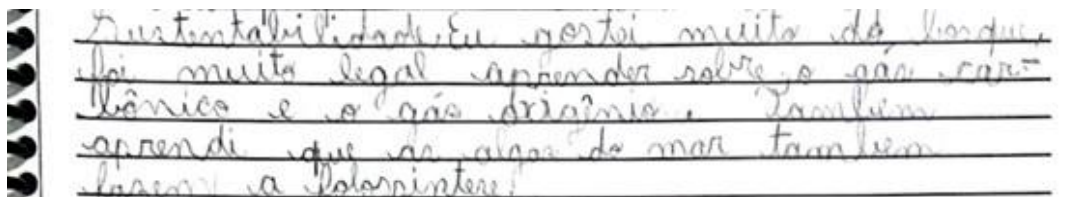 Sustentabilidade. Eu gostei muito do bosque,
foi muito legal aprender sobre o gás car-
bônico e o gás oxigênio. Também
aprendi que as algas do mar tambem
fazem a